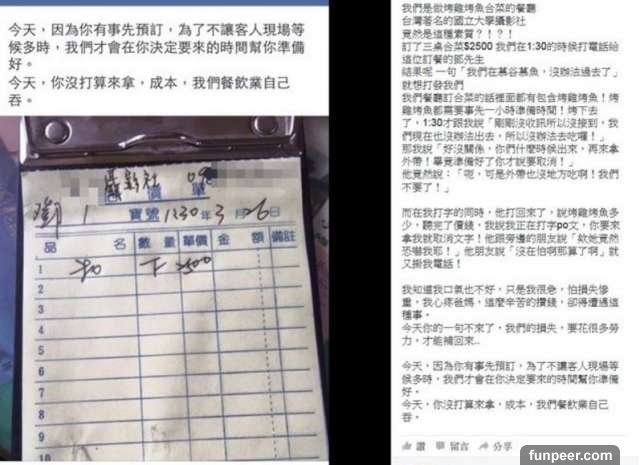 今天，因為你有事先預訂，為了不讓客人現場等
候多時，我們才會在你決定要來的時間幫你準備
好。
今天，你沒打算來拿，成本，我們餐飲業自己
吞。
影社 09
價單
鄭
寶號 1:30 年 3 月 26 日
品名 數量 單價 金額 備註
1 2500
2
3
4
5
6
7
8
9
10
我們是做烤雞烤魚合菜的餐廳
台灣著名的國立大學攝影社
竟然是這種素質？！？！
訂了三桌合菜$2500 我們在1:30的時候打電話給
這位訂餐的鄧先生
結果呢 一句「我們在慕谷慕魚，沒辦法過去了」
就想打發我們
我們餐廳訂合菜的話裡面都有包含烤雞烤魚！烤
雞烤魚都需要事先一小時準備時間！烤下去
了，1:30才跟我說「剛剛沒收訊所以沒接到，我
們現在也沒辦法出去，所以沒辦法去吃囉！」
那我說「好沒關係，你們什麼時候出來，再來拿
外帶！畢竟準備好了你才說要取消！」
他竟然說：「呃，可是外帶也沒地方吃啊！我們
不要了！」
而在我打字的同時，他打回來了，說烤雞烤魚多
少，聽完了價錢，我說我正在打字po文，你要來
拿我就取消文字！他跟旁邊的朋友說「欸她竟然
恐嚇我耶！」他朋友說「沒在怕啊那算了啊」就
又掛我電話！
我知道我口氣也不好，只是我很急，怕損失慘
重，我心疼爸媽，這麼辛苦的攢錢，卻得遭遇這
種事。
今天你的一句不來了，我們的損失，要花很多勞
力，才能補回來..
今天，因為你有事先預訂，為了不讓客人現場等
候多時，我們才會在你決定要來的時間幫你準備
好。
今天，你沒打算來拿，成本，我們餐飲業自己
吞。
讚 留言 分享
funpeer.com